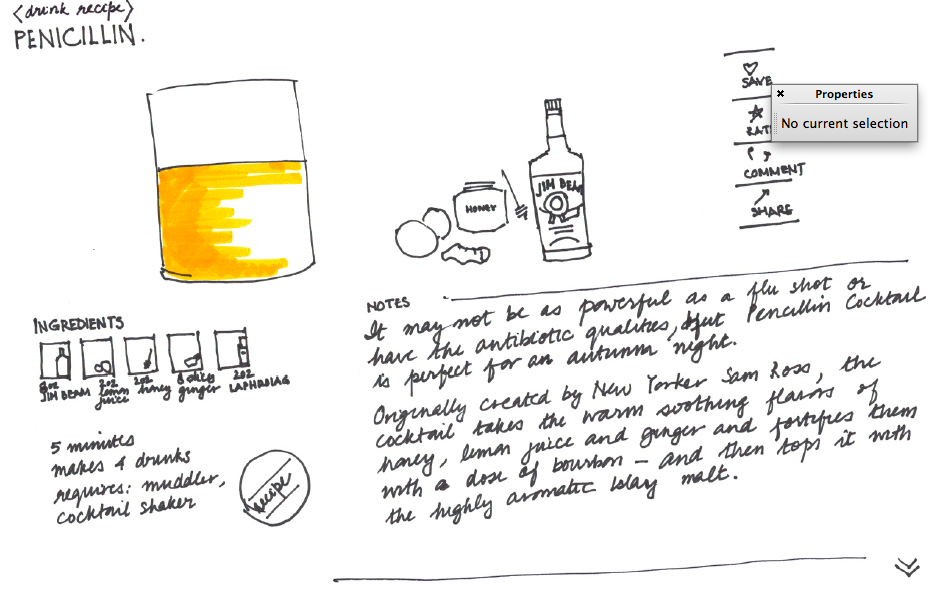 <drink recipe>
PENICILLIN.
SAVE
Properties
No current selection
COMMENT
SHARE
HONEY
JIM BEAM
NOTES
It may not be as powerful as a flu shot or
have the antibiotic qualities, but Pencillin Cocktail
is perfect for an autumn night.
Originally created by New Yorker Sam Ross, the
cocktail takes the warm soothing flavors of
honey, lemon juice and ginger and fortifies them
with a dose of bourbon – and then tops it with
the highly aromatic Islay malt.
INGREDIENTS
8oz JIM BEAM
2oz lemon juice
2oz honey
8 slices ginger
2oz LAPHROAIG
5 minutes
makes 4 drinks
requires: muddler,
cocktail shaker
recipe